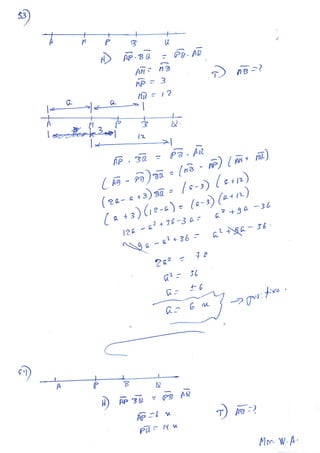 53)
A M P B Q
H) AP·BQ = PB·AQ
AM = MB
MP = 3
MQ = 12
T) MB = ?
a a
A M P B Q
3
12
AP · BQ = PB · AQ
(2a-a+3)BQ = (a-3)(a+12)
(a+3)(12-a) = (a-3)(a+12)
12a - a² + 36 - 3a = a² + 9a - 36
9a - a² + 36 = a² + 9a - 36
2a² = 72
a² = 36
a = ±6
a = 6 → positivo.
54)
A P B Q
H) AP BQ = PB AQ
AP = 6
T) = ?
W.A.